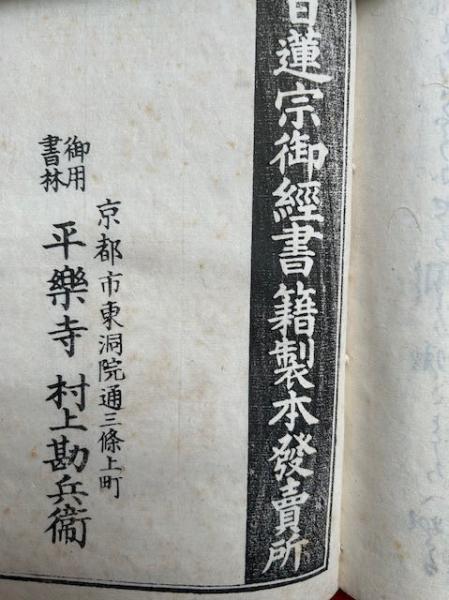 日蓮宗御經書籍製本發賣所
京都市東洞院通三條上町
御用
書林
平樂寺 村上勘兵衞